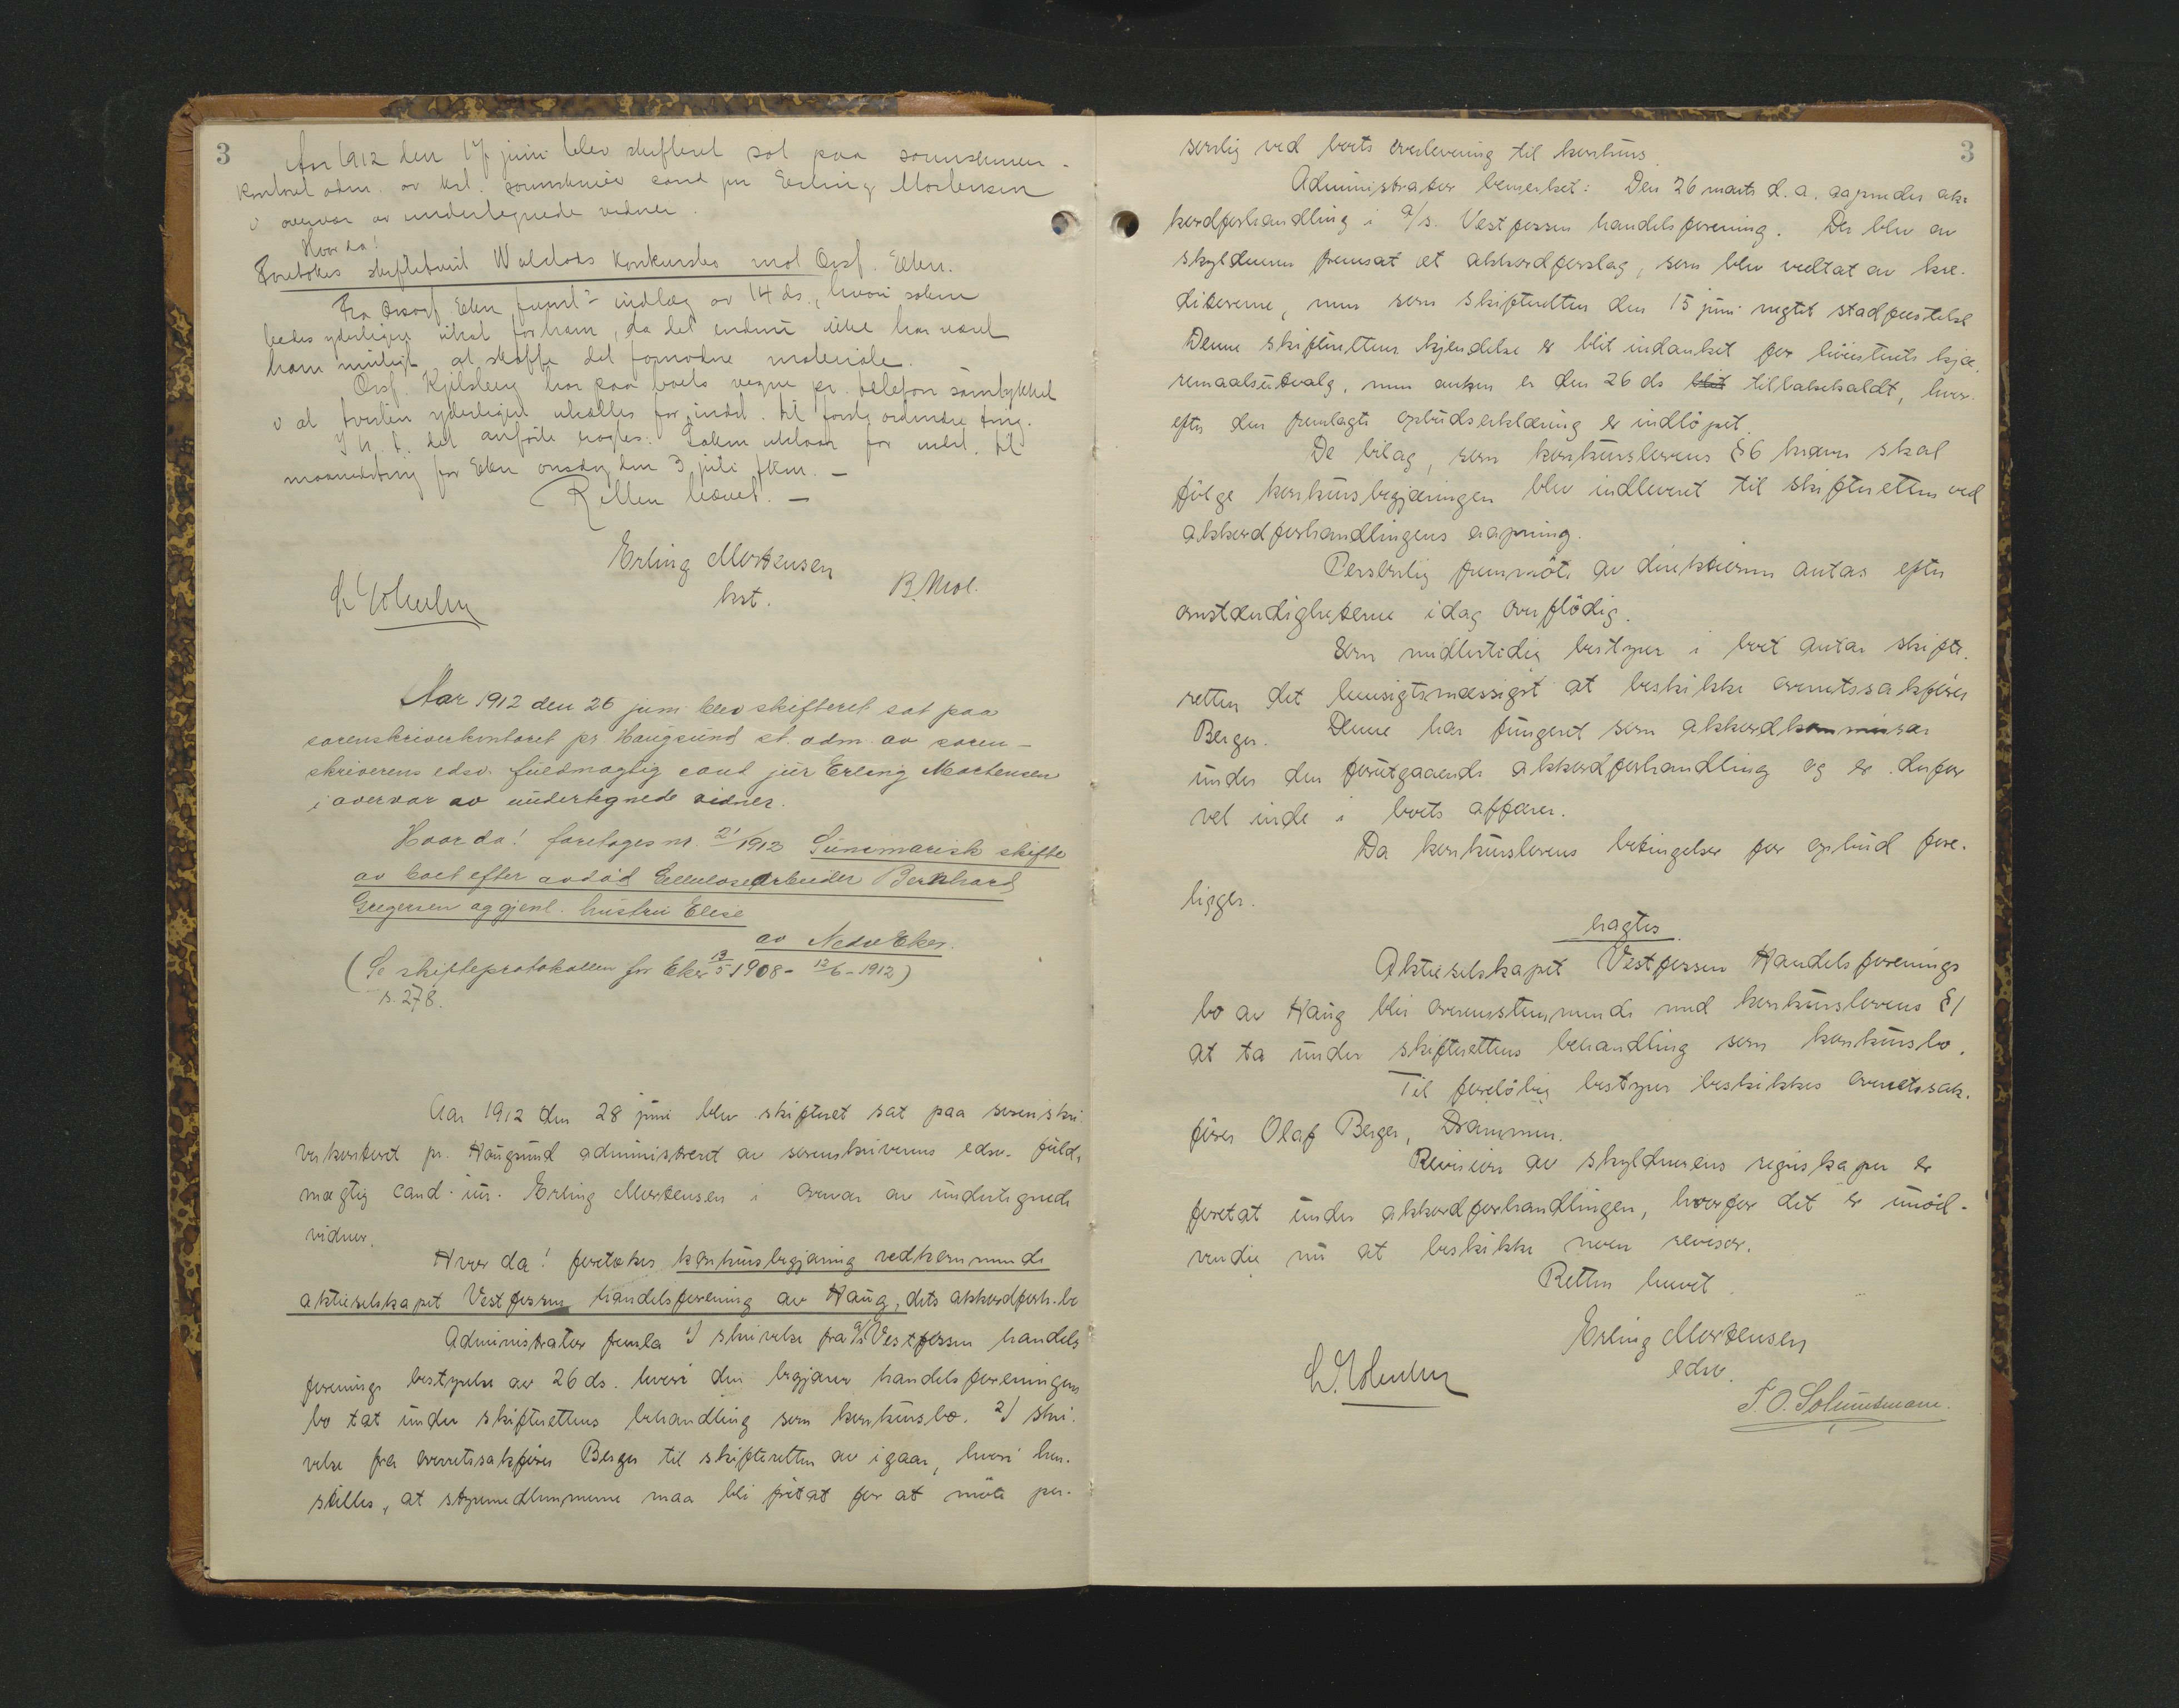 3
Aar 1912 den 17 juni blev skifteret sat paa sorenskriver-
kontoret adm. av kst. sorenskriver cand jur Erling Mortensen
i overvær av undertegnede vidner.
Hvor da!
Foretokes skiftetvist Walstads konkursbo mot Orsf. Eken.
Fra Orsf. Eken freml. indlæg av 14 ds., hvori saken
bedes yderligere utsat for ham, da det endnu ikke har været
ham muligt at skaffe det fornødne materiale.
Orsf. Kjilsberg har paa boets vegne pr. telefon samtykket
i at tvisten yderligere utsættes for indst. til første ordinære ting.
I h. t. det anførte eragtes: Saken utstaar for indst. til
maanedsting for Eker onsdag den 3 juli fkm. -
Retten hævet. -
Erling Mortensen
kst.
B. Mol.
Aar 1912 den 26 juni blev skifteret sat paa
sorenskriverkontoret pr. Haugsund st. adm. av soren-
skriverens edsv. fuldmægtig cand jur Erling Mortensen
i overvær av undertegnede vidner.
Hvor da! foretoges nr. 21/1912 Summarisk skifte
av boet efter avdød Cellulosearbeider Bernhard
Gregersen og gjenl. hustru Elise
av Nedre Eker.
(Se skifteprotokollen for Eker 13/5 1908 - 12/6 - 1912)
s. 278.
Aar 1912 den 28 juni blev skifteret sat paa sorenskri-
verkontoret pr. Haugsund administreret av sorenskriverens edsv. fuld-
mægtig cand. jur. Erling Mortensen i overvær av undertegnede
vidner.
Hvor da! foretokes konkursbegjæring vedkommende
aktieselskapet Vestfossen handelsforening av Haug, dets akkordforh.bo
Administrator fremla 1) skrivelse fra A/S Vestfossen handels
forenings bestyrelse av 26 ds. hvori den begjærer handelsforeningens
bo tat under skifterettens behandling som konkursbo. 2) skri-
velse fra overretssakfører Berger til skifteretten av igaar, hvori hen-
stilles, at styremedlemmerne maa bli fritat for at møte per-
3
sonlig ved boets overlevering til konkurs.
Administrator bemerket: Den 26 marts d.a. aapnedes ak-
kordforhandling i A/S. Vestfossen handelsforening. Der blev av
skyldneren fremsat et akkordforslag, som blev vedtat av kre-
ditorerne, men som skifteretten den 15 juni negtet stadfæstelse
Denne skifterettens kjendelse er blit indanket for høiesterets kjæ-
remaalsutvalg, men anken er den 26 ds blit tilbakekaldt, hvor-
efter den fremlagte opbudserklæring er indløpet.
De bilag, som konkurslovens §6 kræver skal
følge konkursbegjæringen blev indleveret til skifteretten ved
akkordforhandlingens aapning.
Personlig fremmøte av direktionen antas efter
omstændigheterne idag overflødig.
Som midlertidig bestyrer i boet antar skifte-
retten det hensigtsmæssigst at beskikke overretssakfører
Berger. Denne har fungeret som akkordkommissær
under den forutgaaende akkordforhandling og er derfor
vel inde i boets affærer.
Da konkurslovens betingelser for opbud fore-
ligger.
eragtes.
Aktieselskapet Vestfossen Handelsforenings
bo av Haug blir overensstemmende med konkurslovens §1
at ta under skifterettens behandling som konkursbo.
Til foreløbig bestyrer beskikkes overretssak-
fører Olaf Berger, Drammen.
Revision av skyldnerens regnskaper er
foretat under akkordforhandlingen, hvorfor det er unød-
vendig nu at beskikke noen revisor.
Retten hævet.
Erling Mortensen
edsv.